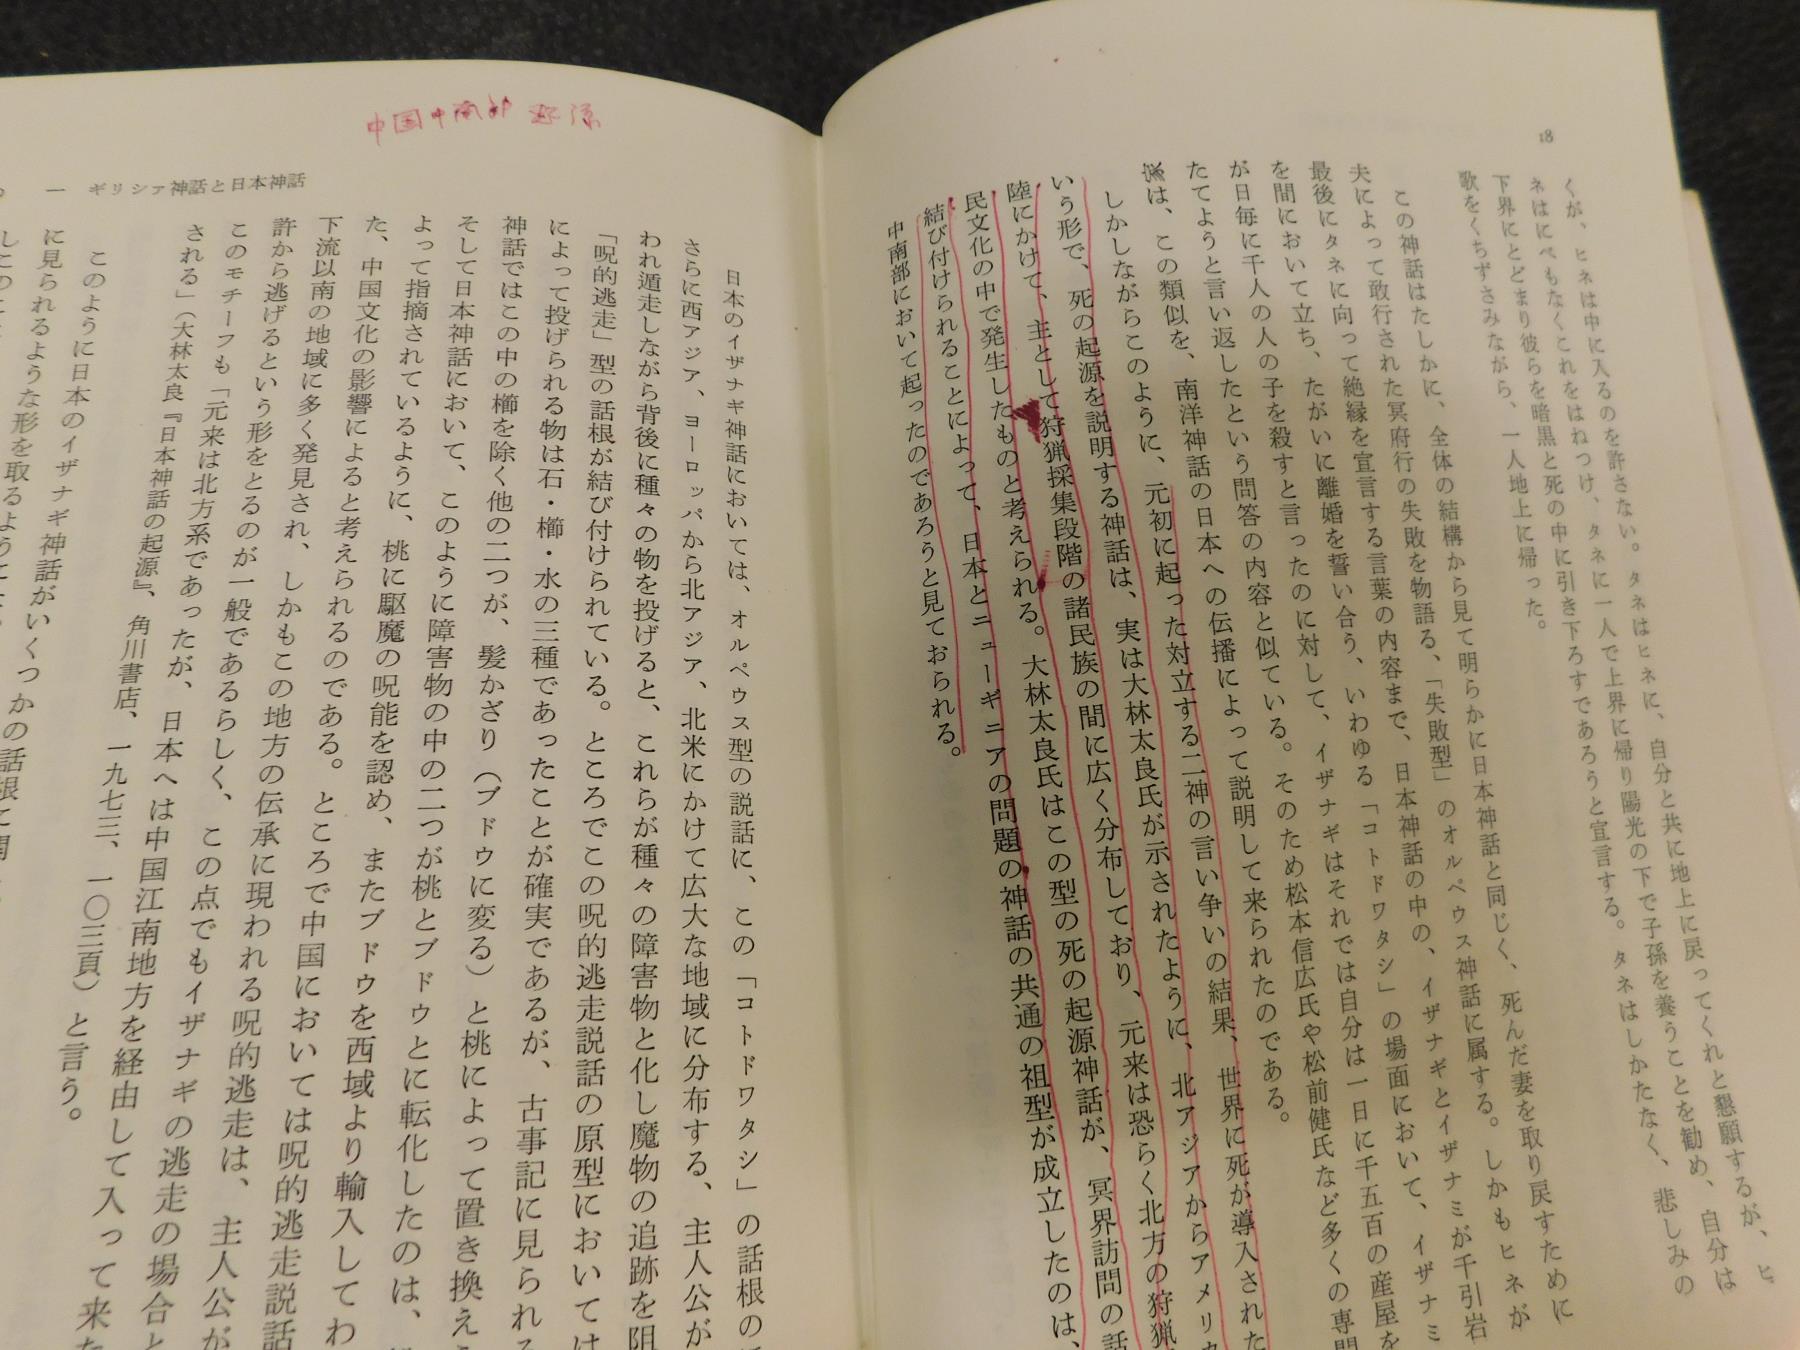 18
くが、ヒネは中に入るのを許さない。タネはヒネに、自分と共に地上に戻ってくれと懇願するが、ヒ
ネはにべもなくこれをはねつけ、タネに一人で上界に帰り陽光の下で子孫を養うことを勧め、自分は
下界にとどまり彼らを暗黒と死の中に引き下ろすであろうと宣言する。タネはしかたなく、悲しみの
歌をくちずさみながら、一人地上に帰った。
この神話はたしかに、全体の結構から見て明らかに日本神話と同じく、死んだ妻を取り戻すために
夫によって敢行された冥府行の失敗を物語る、「失敗型」のオルペウス神話に属する。しかもヒネが
最後にタネに向って絶縁を宣言する言葉の内容まで、日本神話の中の、イザナギとイザナミが千引岩
を間において立ち、たがいに離婚を誓い合う、いわゆる「コトドワタシ」の場面において、イザナミ
が日毎に千人の人の子を殺すと言ったのに対して、イザナギはそれでは自分は一日に千五百の産屋を
たてようと言い返したという問答の内容と似ている。そのため松本信広氏や松前健氏など多くの専門
は、この類似を、南洋神話の日本への伝播によって説明して来られたのである。
しかしながらこのように、元初に起った対立する二神の言い争いの結果、世界に死が導入された
いう形で、死の起源を説明する神話は、実は大林太良氏が示されたように、北アジアからアメリカ
陸にかけて、主として狩猟採集段階の諸民族の間に広く分布しており、元来は恐らく北方の狩猟
民文化の中で発生したものと考えられる。大林太良氏はこの型の死の起源神話が、冥界訪問の話
結び付けられることによって、日本とニューギニアの問題の神話の共通の祖型が成立したのは、
中南部において起ったのであろうと見ておられる。
中国中南部
一 ギリシァ神話と日本神話
日本のイザナギ神話においては、オルペウス型の説話に、この「コトドワタシ」の話根の
さらに西アジア、ヨーロッパから北アジア、北米にかけて広大な地域に分布する、主人公が
われ遁走しながら背後に種々の物を投げると、これらが種々の障害物と化し魔物の追跡を阻
「呪的逃走」型の話根が結び付けられている。ところでこの呪的逃走説話の原型においては
によって投げられる物は石・櫛・水の三種であったことが確実であるが、古事記に見られ
神話ではこの中の櫛を除く他の二つが、髪かざり（ブドウに変る）と桃によって置き換え
そして日本神話において、このように障害物の中の二つが桃とブドウとに転化したのは、
よって指摘されているように、桃に駆魔の呪能を認め、またブドウを西域より輸入してわ
た、中国文化の影響によると考えられるのである。ところで中国においては呪的逃走説話
下流以南の地域に多く発見され、しかもこの地方の伝承に現われる呪的逃走は、主人公が
許から逃げるという形をとるのが一般であるらしく、この点でもイザナギの逃走の場合と
このモチーフも「元来は北方系であったが、日本へは中国江南地方を経由して入って来た
される」（大林太良『日本神話の起源』、角川書店、一九七三、一〇三頁）と言う。
このように日本のイザナギ神話がいくつかの話根に
に見られるような形を取るように